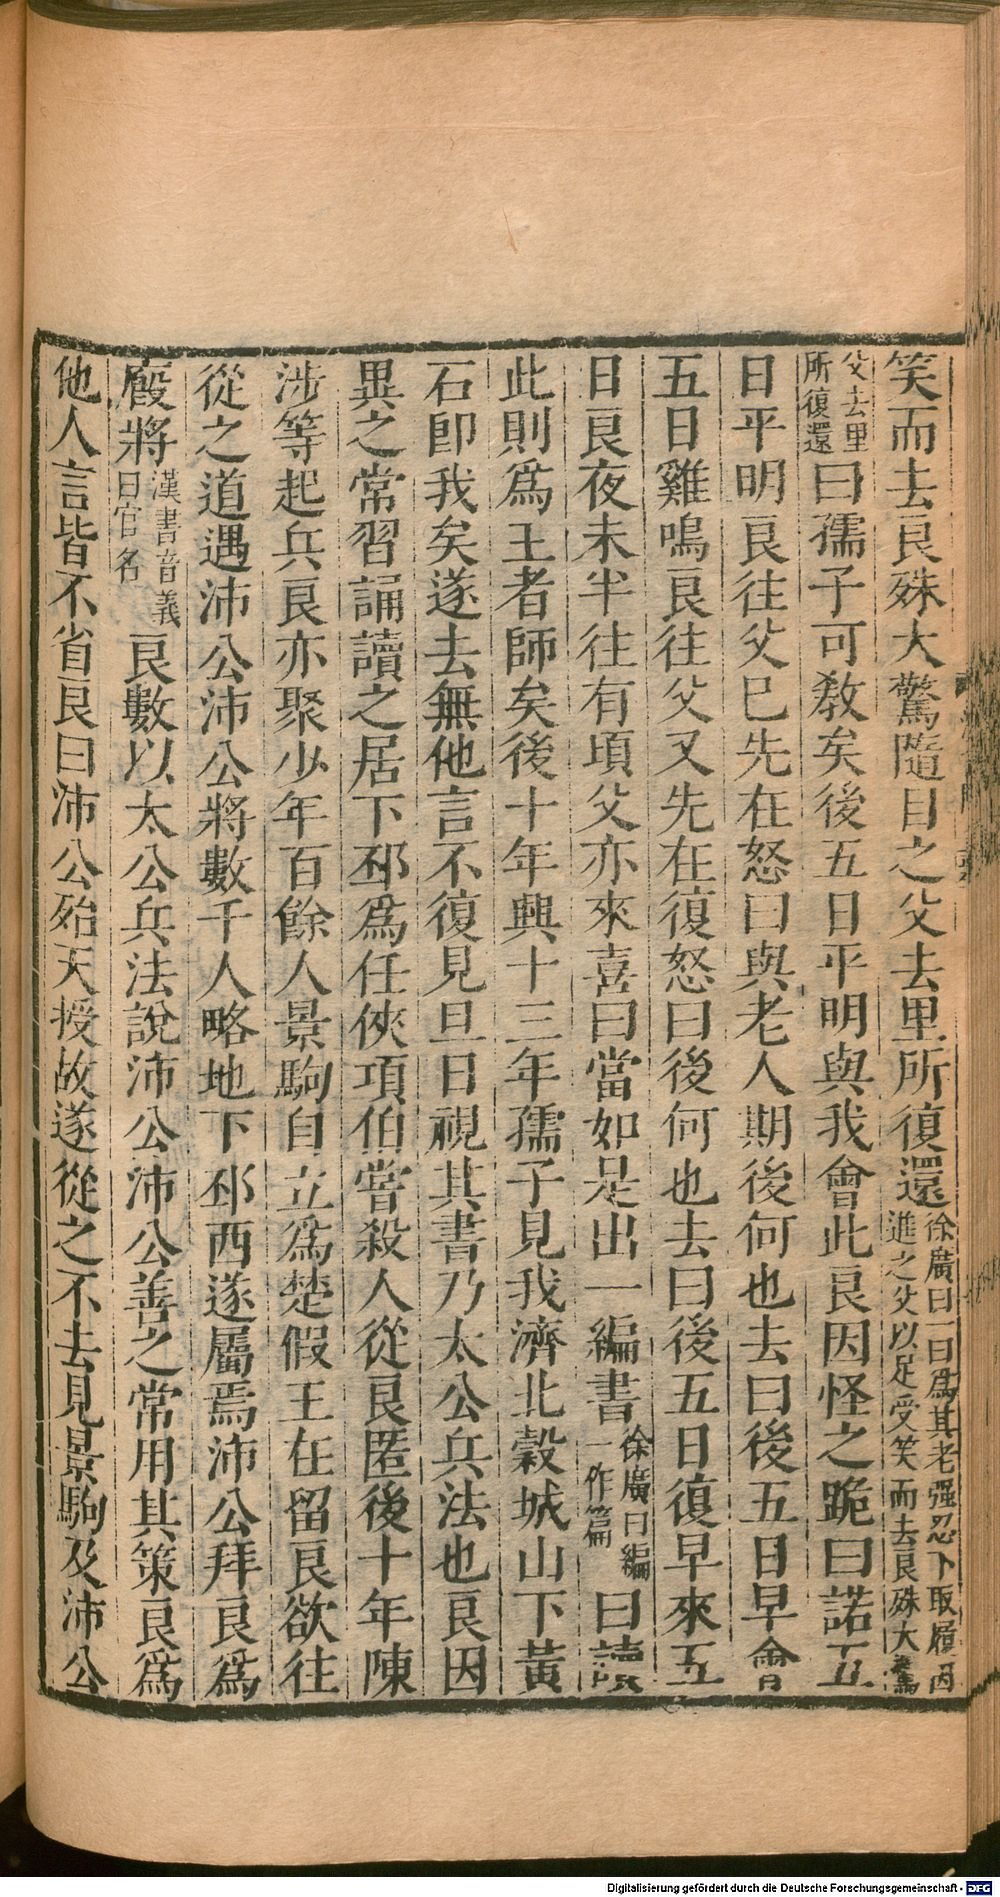 笑而去良殊大驚隨目之父去里所復還徐廣曰一曰爲其老强忍下取履因進之父以足受笑而去良殊大驚
父去里所復還曰孺子可教矣後五日平明與我會此良因怪之跪曰諾五
日平明良往父已先在怒曰與老人期後何也去曰後五日早會
五日雞鳴良往父又先在復怒曰後何也去曰後五日復早來五
日良夜未半往有頃父亦來喜曰當如是出一編書徐廣曰編一作篇曰讀
此則爲王者師矣後十年興十三年孺子見我濟北穀城山下黃
石卽我矣遂去無他言不復見旦日視其書乃太公兵法也良因
異之常習誦讀之居下邳爲任俠項伯嘗殺人從良匿後十年陳
涉等起兵良亦聚少年百餘人景駒自立爲楚假王在留良欲往
從之道遇沛公沛公將數千人略地下邳西遂屬焉沛公拜良爲
廄將漢書音義曰官名良數以太公兵法說沛公沛公善之常用其策良爲
他人言皆不省良曰沛公殆天授故遂從之不去見景駒及沛公
Digitalisierung gefördert durch die Deutsche Forschungsgemeinschaft - DFG